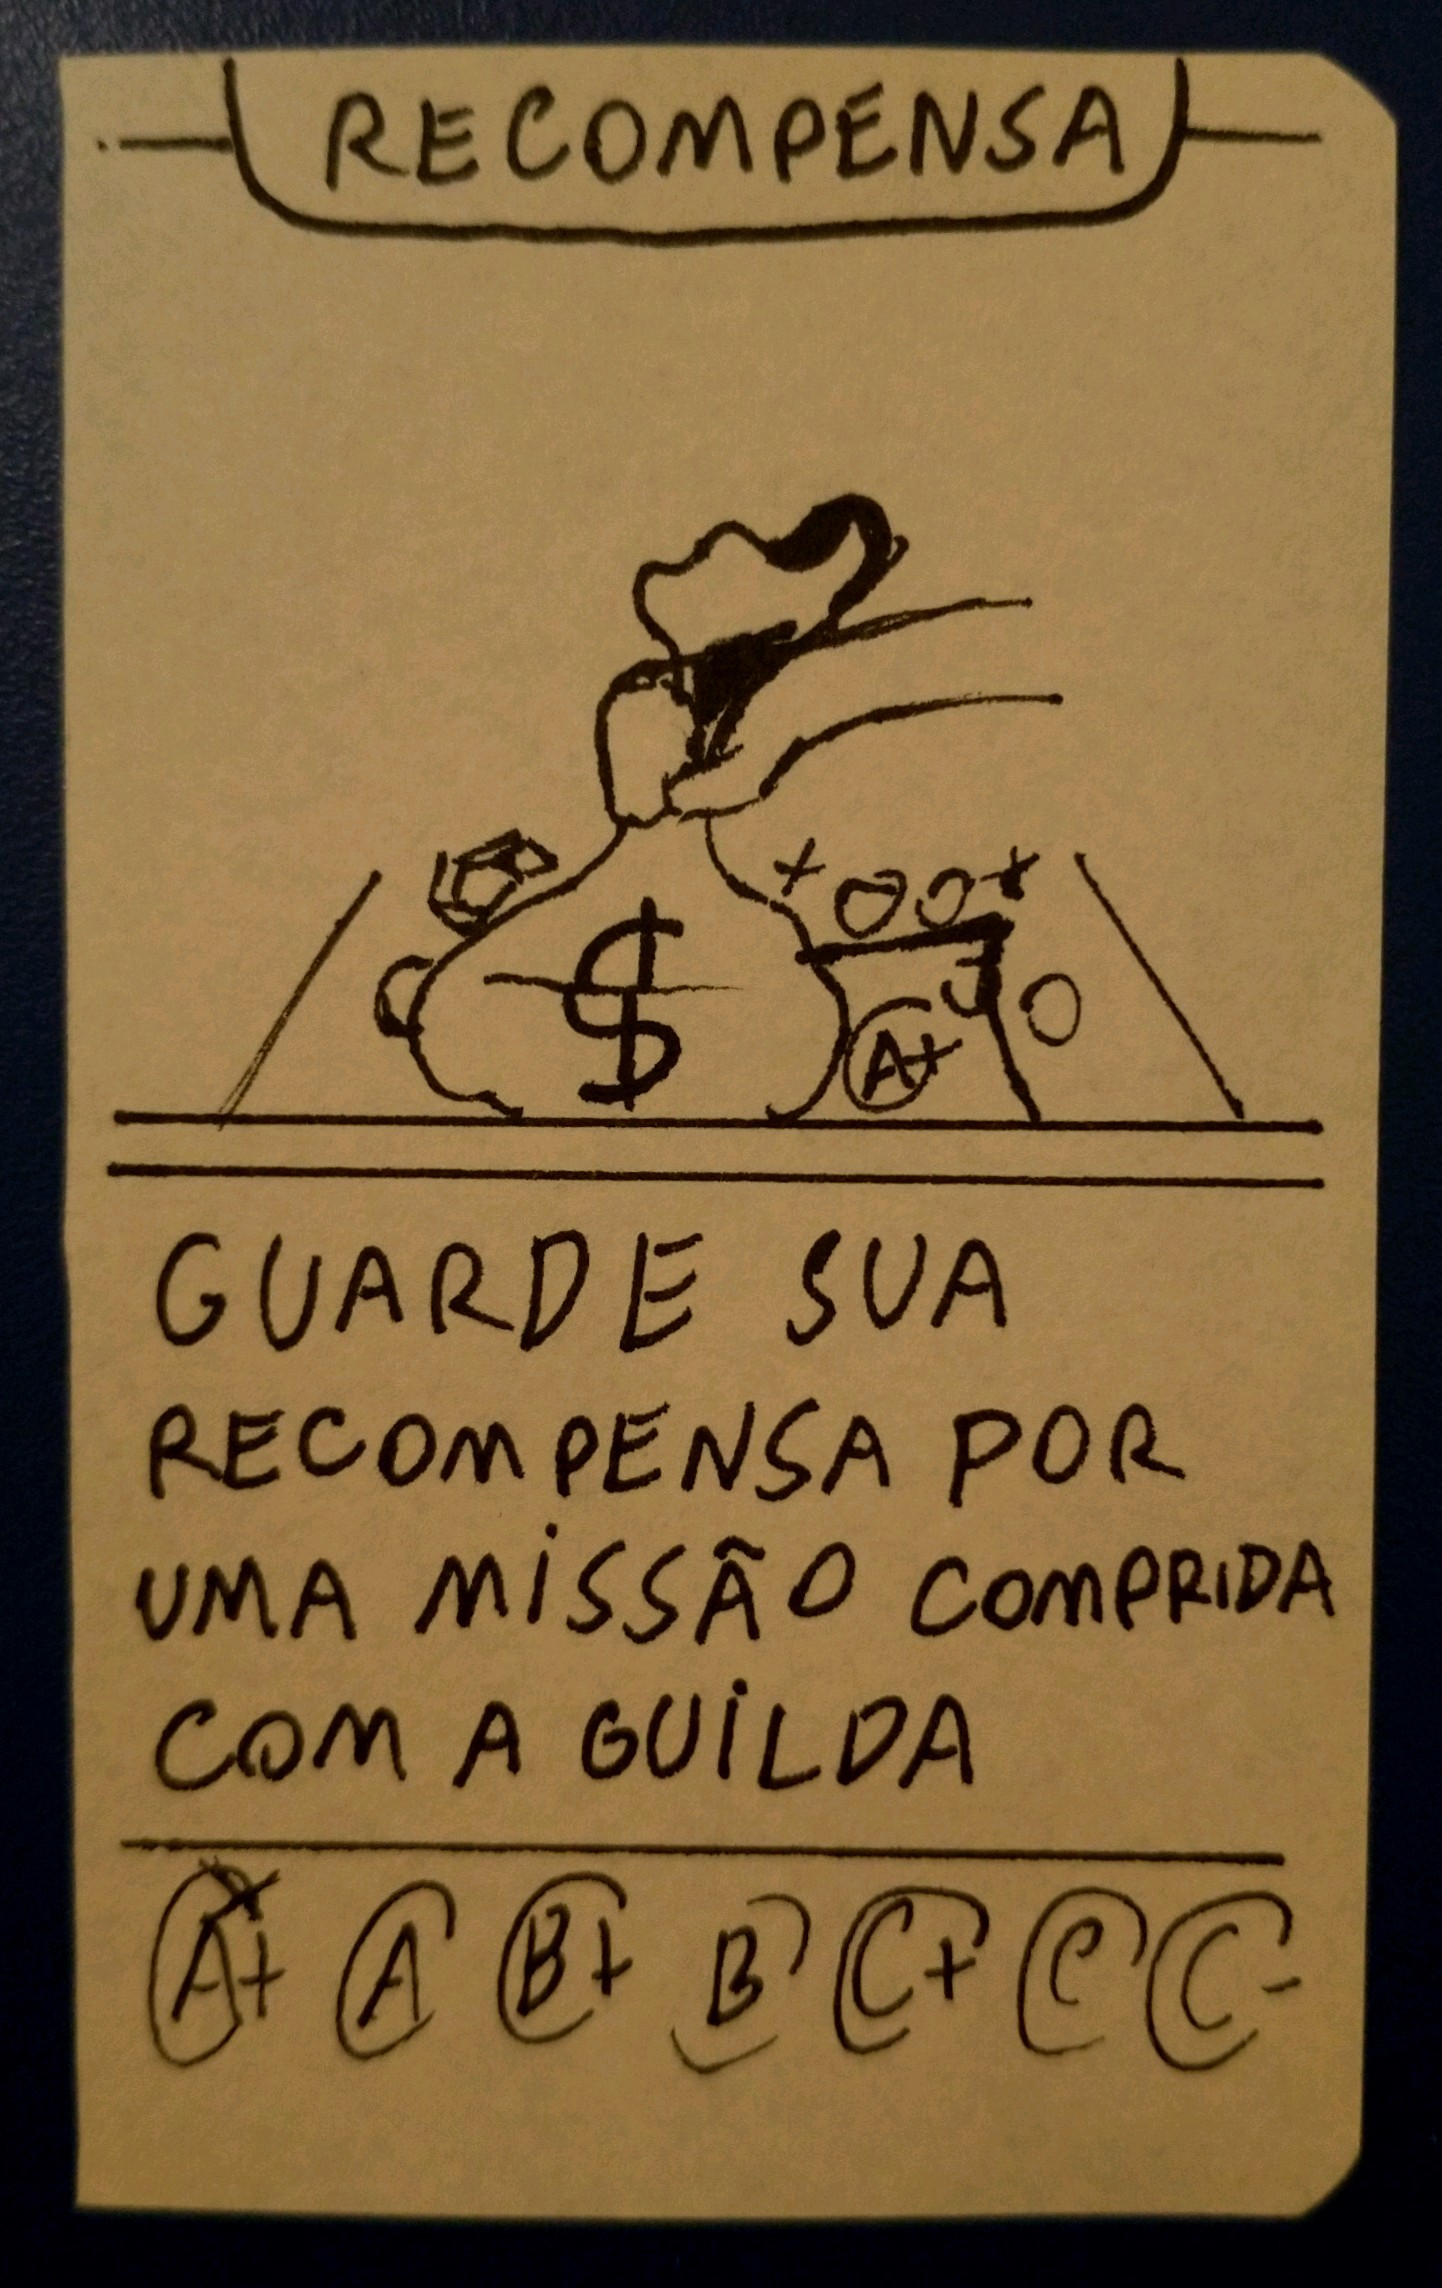 RECOMPENSA
$
A+
GUARDE SUA
RECOMPENSA POR
UMA MISSÃO COMPRIDA
COM A GUILDA
A+ A B+ B C+ C C-